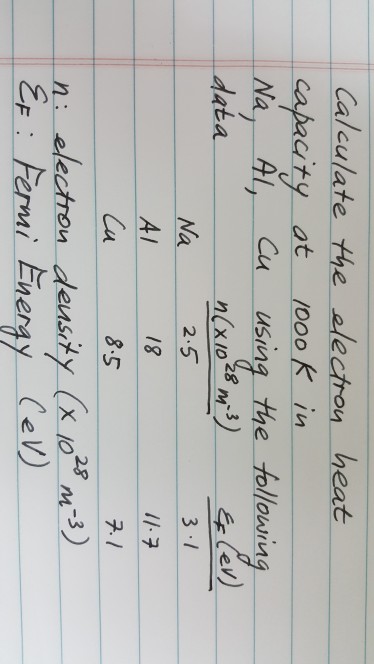 Calculate the electron heat
capacity at 1000K in
Na, Al, Cu using the following
data
n(×10²⁸ m⁻³) ℰF(eV)
Na 2.5 3.1
Al 18 11.7
Cu 8.5 7.1
n: electron density (×10²⁸ m⁻³)
ℰF: Fermi Energy (eV)